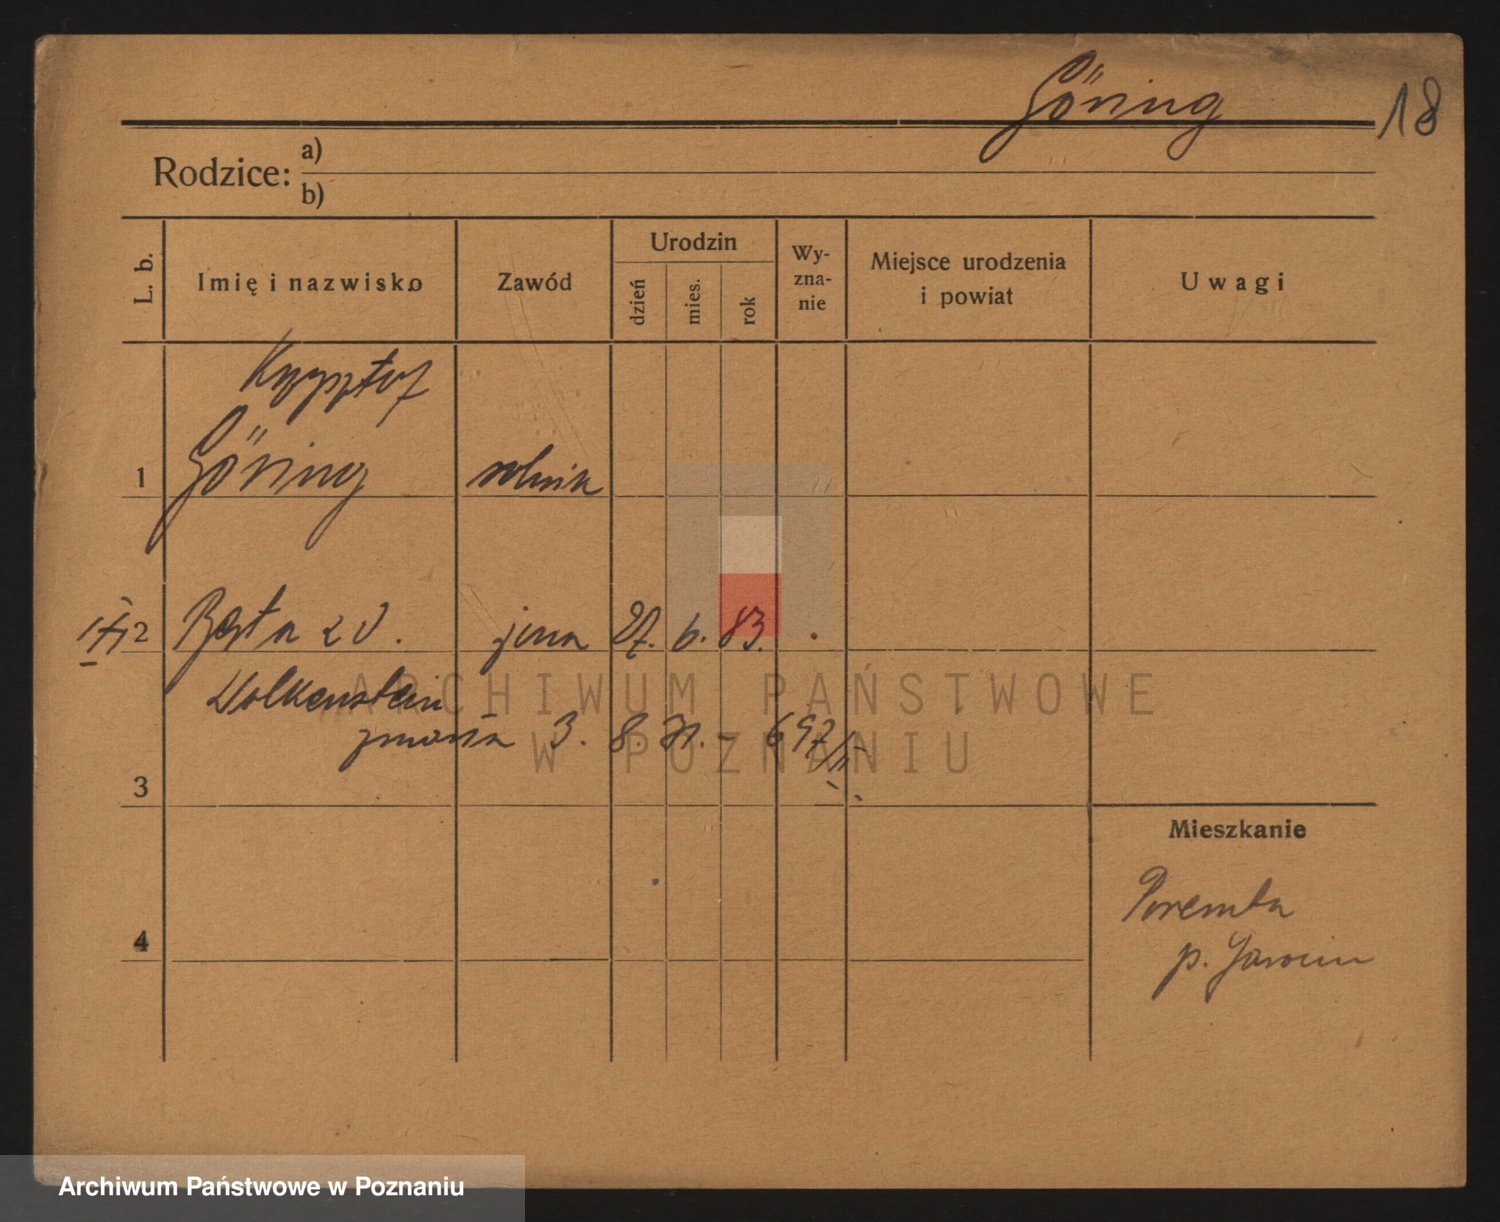 Göring 18
Rodzice: a)
b)
L. b. Imię i nazwisko Zawód Urodzin dzień mies. rok Wy-zna-nie Miejsce urodzenia i powiat Uwagi
Krzysztof
1 Göring rolnik
2 Berta z d. żona 27. 6. 83.
Wolkenstein
zmarła 3. 8. 31. – 697/II
3
Mieszkanie
Poremba
4
p. Jarocin
ARCHIWUM PAŃSTWOWE
W POZNANIU
Archiwum Państwowe w Poznaniu